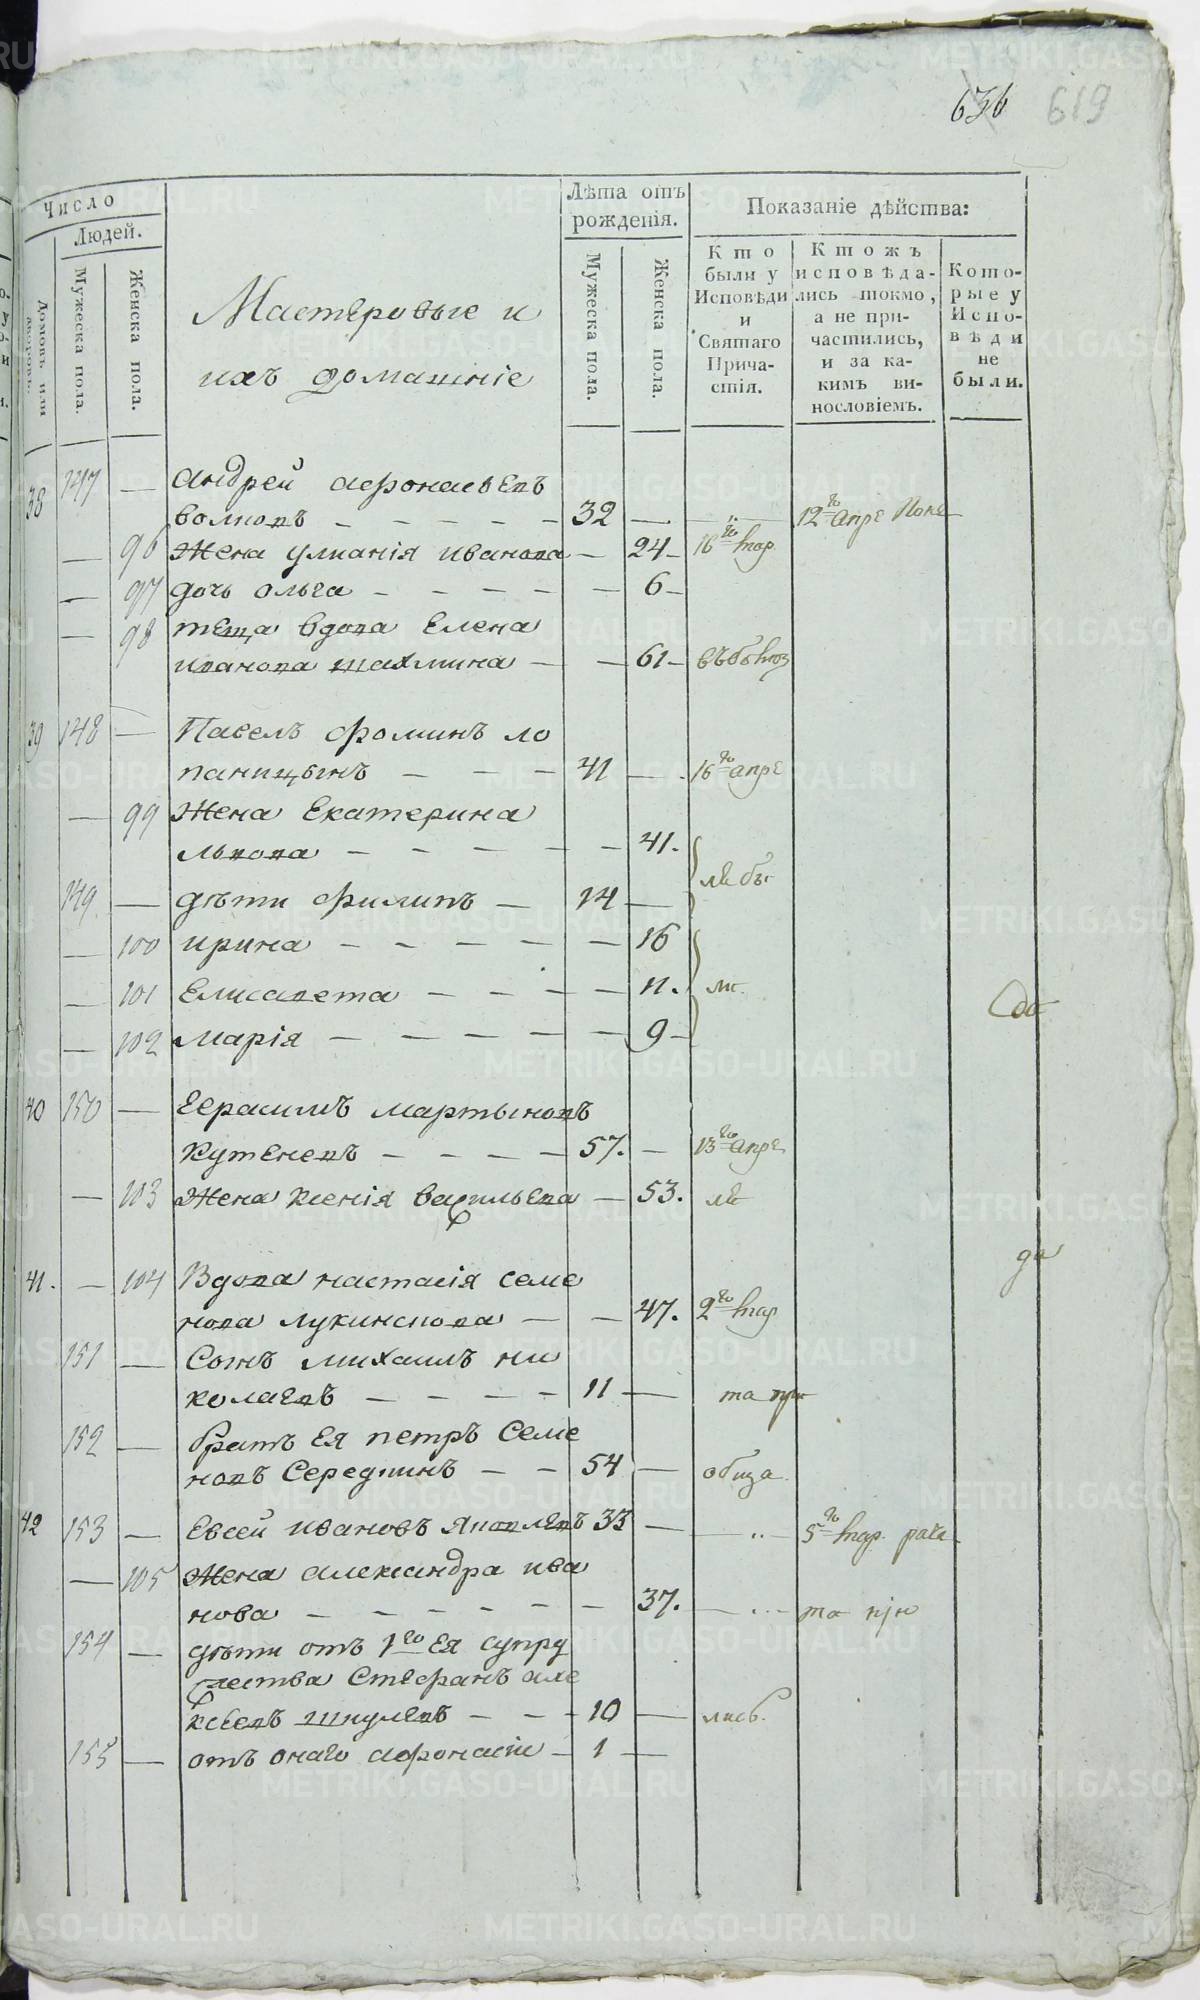 636 619
Число
Людей.
Домовъ или дворовъ.
Мужеска пола.
Женска пола.
Мастеровые и
ихъ домашніе
Лѣта отъ рожденія.
Мужеска пола.
Женска пола.
Показаніе дѣйства:
Кто были у Исповѣди и Святаго Причастія.
Ктожъ исповѣдались токмо, а не причастились, и за какимъ винословіемъ.
Которые у Исповѣди не были.
38 147 — Андрей афонасьевъ
волковъ — 32 — 12го апре
— 96 Жена улианія иванова — 24 — 16го мар.
— 97 дочь ольга — 6 —
— 98 теща вдова Елена
иванова шахмина — 61 —
39 148 — Павелъ фоминъ ло
паницынъ — 41 — 16го апре
— 99 Жена Екатерина
львова — 41.
149 — дѣти филипъ — 14 —
— 100 ирина — 16
— 101 Елисавета — 11.
— 102 марія — 9 —
40 150 — Герасимъ мартыновъ
кутеневъ — 57. — 13го апре
— 103 Жена ксенія васильева — 53.
41. — 104 Вдова настасія семе
нова лукинскова — 47. 2го мар
151 — Сынъ михаилъ ни
колаевъ — 11 —
152 — братъ Ея петръ Семе
новъ Середкинъ — 54 —
42 153 — Евсей ивановъ Яковлевъ 33 — 5го мар.
— 105 Жена александра ива
нова — 37.
154 — дѣти отъ 1го Ея супру
жества Стефанъ але
ксѣевъ шкулевъ — 10 —
155 — отъ онаго афонасіи — 1 —